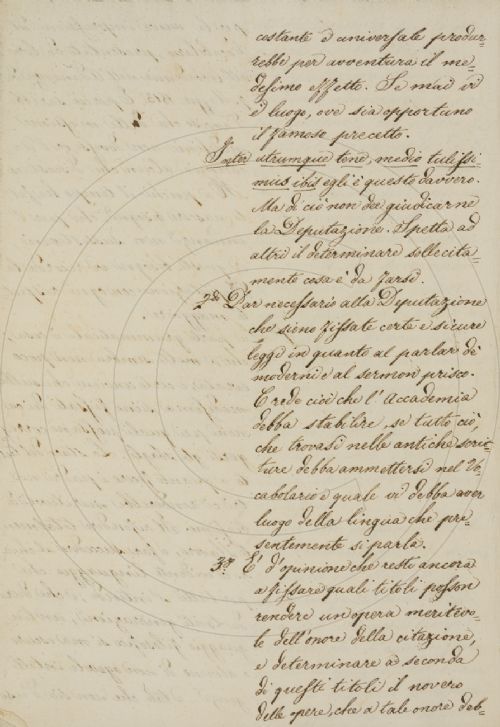 costante e universale produr=
rebbe per avventura il me=
desimo effetto. Se mai vi
è luogo, ove sia opportuno
il famoso precetto.
Inter utrumque tene, medio tutissi=
mus ibis egli è questo davvero.
Ma di ciò non dee giudicarne
la Deputazione. Spetta ad
altri il determinare sollecita=
mente cosa è da farsi.
2do Par necessario alla Deputazione
che sieno fissate certe e sicure
leggi in quanto al parlar de'
moderni e al sermon prisco.
Crede cioè che l'Accademia
debba stabilire, se tutto ciò,
che trovasi nelle antiche scrit=
ture debba ammettersi nel Vo=
cabolario e quale vi debba aver
luogo della lingua che pre=
sentemente si parla.
3o È d'opinione che resti ancora
a fissare quali titoli posson
rendere un opera meritevo=
le dell'onore della citazione,
e determinare a seconda
di questi titoli il novero
delle opere, che a tale onore deb=